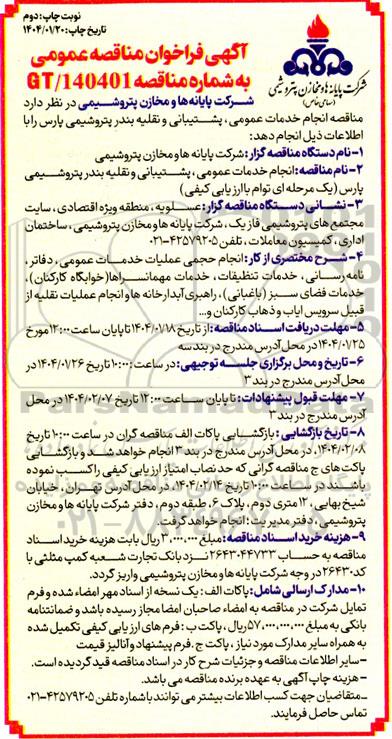 نوبت چاپ: دوم
تاریخ چاپ: ۱۴۰۴/۰۱/۲۰
آگهی فراخوان مناقصه عمومی
به شماره مناقصه GT/140401
شرکت پایانه ها و مخازن پتروشیمی
(سهامی خاص)
شرکت پایانه ها و مخازن پتروشیمی در نظر دارد
مناقصه انجام خدمات عمومی، پشتیبانی و نقلیه بندر پتروشیمی پارس را با
اطلاعات ذیل انجام دهد:
۱- نام دستگاه مناقصه گزار: شرکت پایانه ها و مخازن پتروشیمی
۲- نام مناقصه: انجام خدمات عمومی، پشتیبانی و نقلیه بندر پتروشیمی
پارس (یک مرحله ای توام با ارزیابی کیفی)
۳- نشانی دستگاه مناقصه گزار: عسلویه، منطقه ویژه اقتصادی، سایت
مجتمع های پتروشیمی فاز یک، شرکت پایانه ها و مخازن پتروشیمی، ساختمان
اداری، کمیسیون معاملات، تلفن ۴۲۵۷۹۲۰۵-۰۲۱
۴- شرح مختصری از کار: انجام حجمی عملیات خدمات عمومی، دفاتر،
نامه رسانی، خدمات تنظیفات، خدمات مهمانسراها(خوابگاه کارکنان)،
خدمات فضای سبز (باغبانی)، راهبری آبدارخانه ها و انجام عملیات نقلیه از
قبیل سرویس ایاب و ذهاب کارکنان و...
۵- مهلت دریافت اسناد مناقصه: از تاریخ ۱۴۰۴/۰۱/۱۸ تا پایان ساعت ۱۴:۰۰ مورخ
۱۴۰۴/۰۱/۲۵ در محل آدرس مندرج در بند سه
۶- تاریخ و محل برگزاری جلسه توجیهی: در ساعت: ۱۰:۰۰ تاریخ ۱۴۰۴/۰۱/۲۶ در
محل آدرس مندرج در بند ۳
۷- مهلت قبول پیشنهادات: تا پایان ساعت ۱۲:۰۰ تاریخ ۱۴۰۴/۰۲/۰۷ در محل
آدرس مندرج در بند ۳
۸- تاریخ بازگشایی: بازگشایی پاکات الف مناقصه گران در ساعت ۱۰:۰۰ تاریخ
۱۴۰۴/۰۲/۰۸، در محل آدرس مندرج در بند ۳ انجام خواهد شد و بازگشایی
پاکت های ج مناقصه گرانی که حد نصاب امتیاز ارزیابی کیفی را کسب نموده
باشند در ساعت ۱۰:۰۰ تاریخ ۱۴۰۴/۰۲/۱۴ در محل آدرس تهران، خیابان
شیخ بهایی، ۱۲ متری دوم، پلاک ۶، طبقه دوم، دفتر شرکت پایانه ها و مخازن
پتروشیمی، دفتر مدیریت؛ انجام خواهد گرفت.
۹- هزینه خرید اسناد مناقصه: مبلغ ۳,۰۰۰,۰۰۰ ریال بابت هزینه خرید اسناد
مناقصه به حساب ۲۶۴۳۰۴۴۷۳۳ نزد بانک تجارت شعبه کمپ مثلثی با
کد ۲۶۴۳۰ در وجه شرکت پایانه ها و مخازن پتروشیمی واریز گردد.
۱۰- مدارک ارسالی شامل: پاکات الف: یک نسخه از اسناد مهر امضاء شده و فرم
تمایل شرکت در مناقصه به امضاء صاحبان امضا مجاز رسیده باشد و ضمانتنامه
بانکی به مبلغ ۵۷,۰۰۰,۰۰۰,۰۰۰ ریال، پاکت ب: فرم های ارزیابی کیفی تکمیل شده
به همراه سایر مدارک مورد نیاز، پاکت ج: فرم پیشنهاد و آنالیز قیمت
- سایر اطلاعات مناقصه و جزئیات شرح کار در اسناد مناقصه قید گردیده است.
- هزینه چاپ آگهی به عهده برنده مناقصه می باشد.
- متقاضیان جهت کسب اطلاعات بیشتر می توانند با شماره تلفن ۴۲۵۷۹۲۰۵-۰۲۱
تماس حاصل فرمایند.